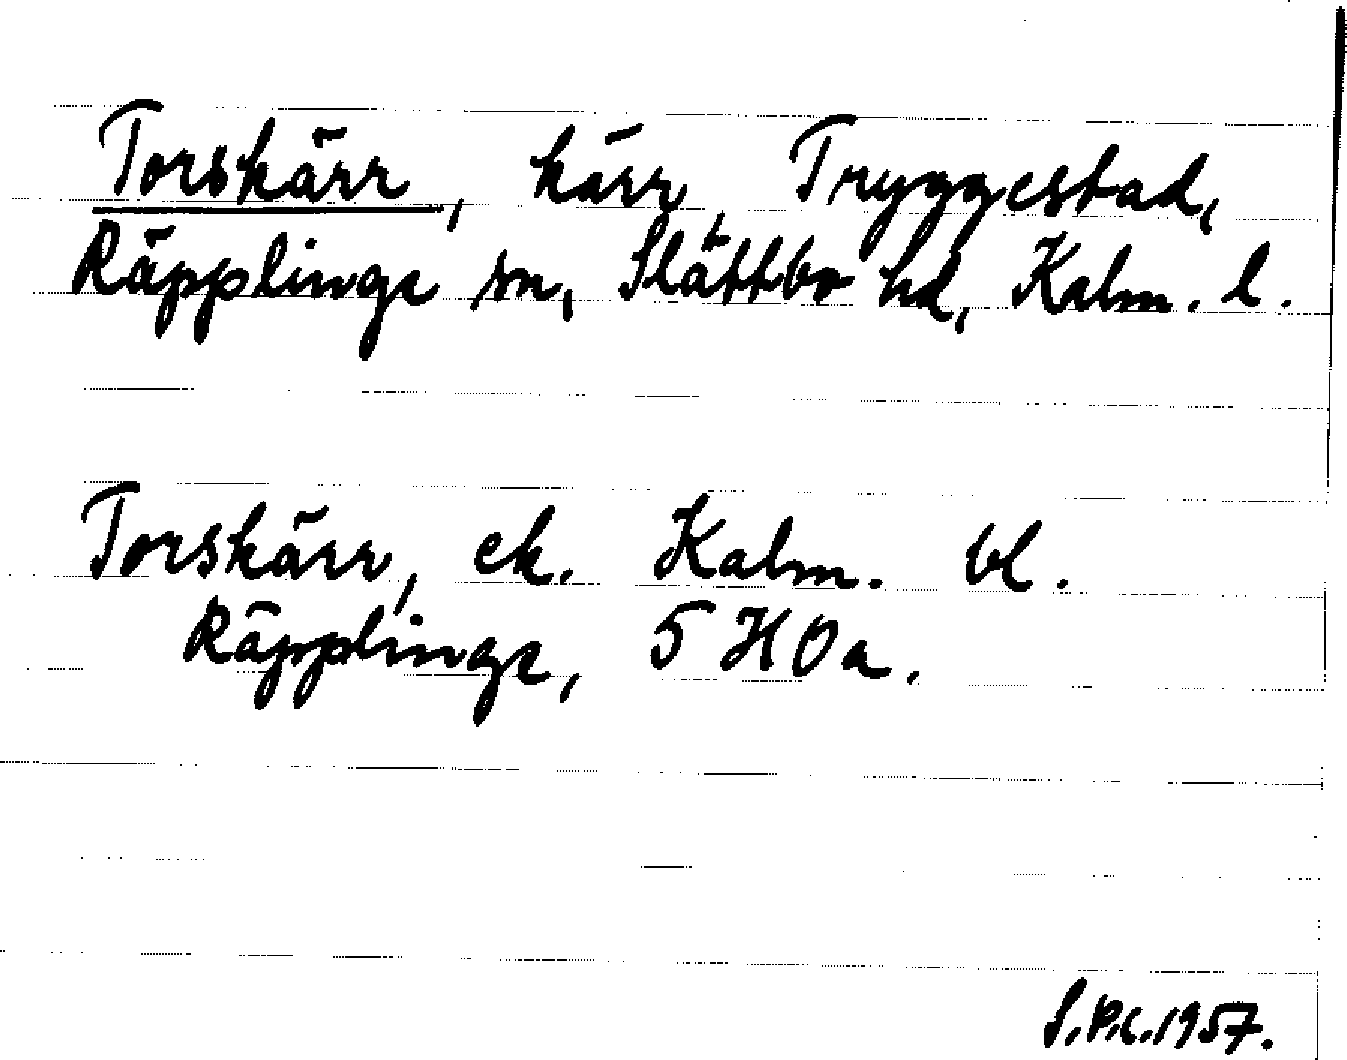 Torskärr, kärr, Tryggestad,
Räpplinge sn, Slättbo hd, Kalm. l.
Torskärr, ek. Kalm. bl.
Räpplinge, 5 H 0a.
S.P.C. 1957.